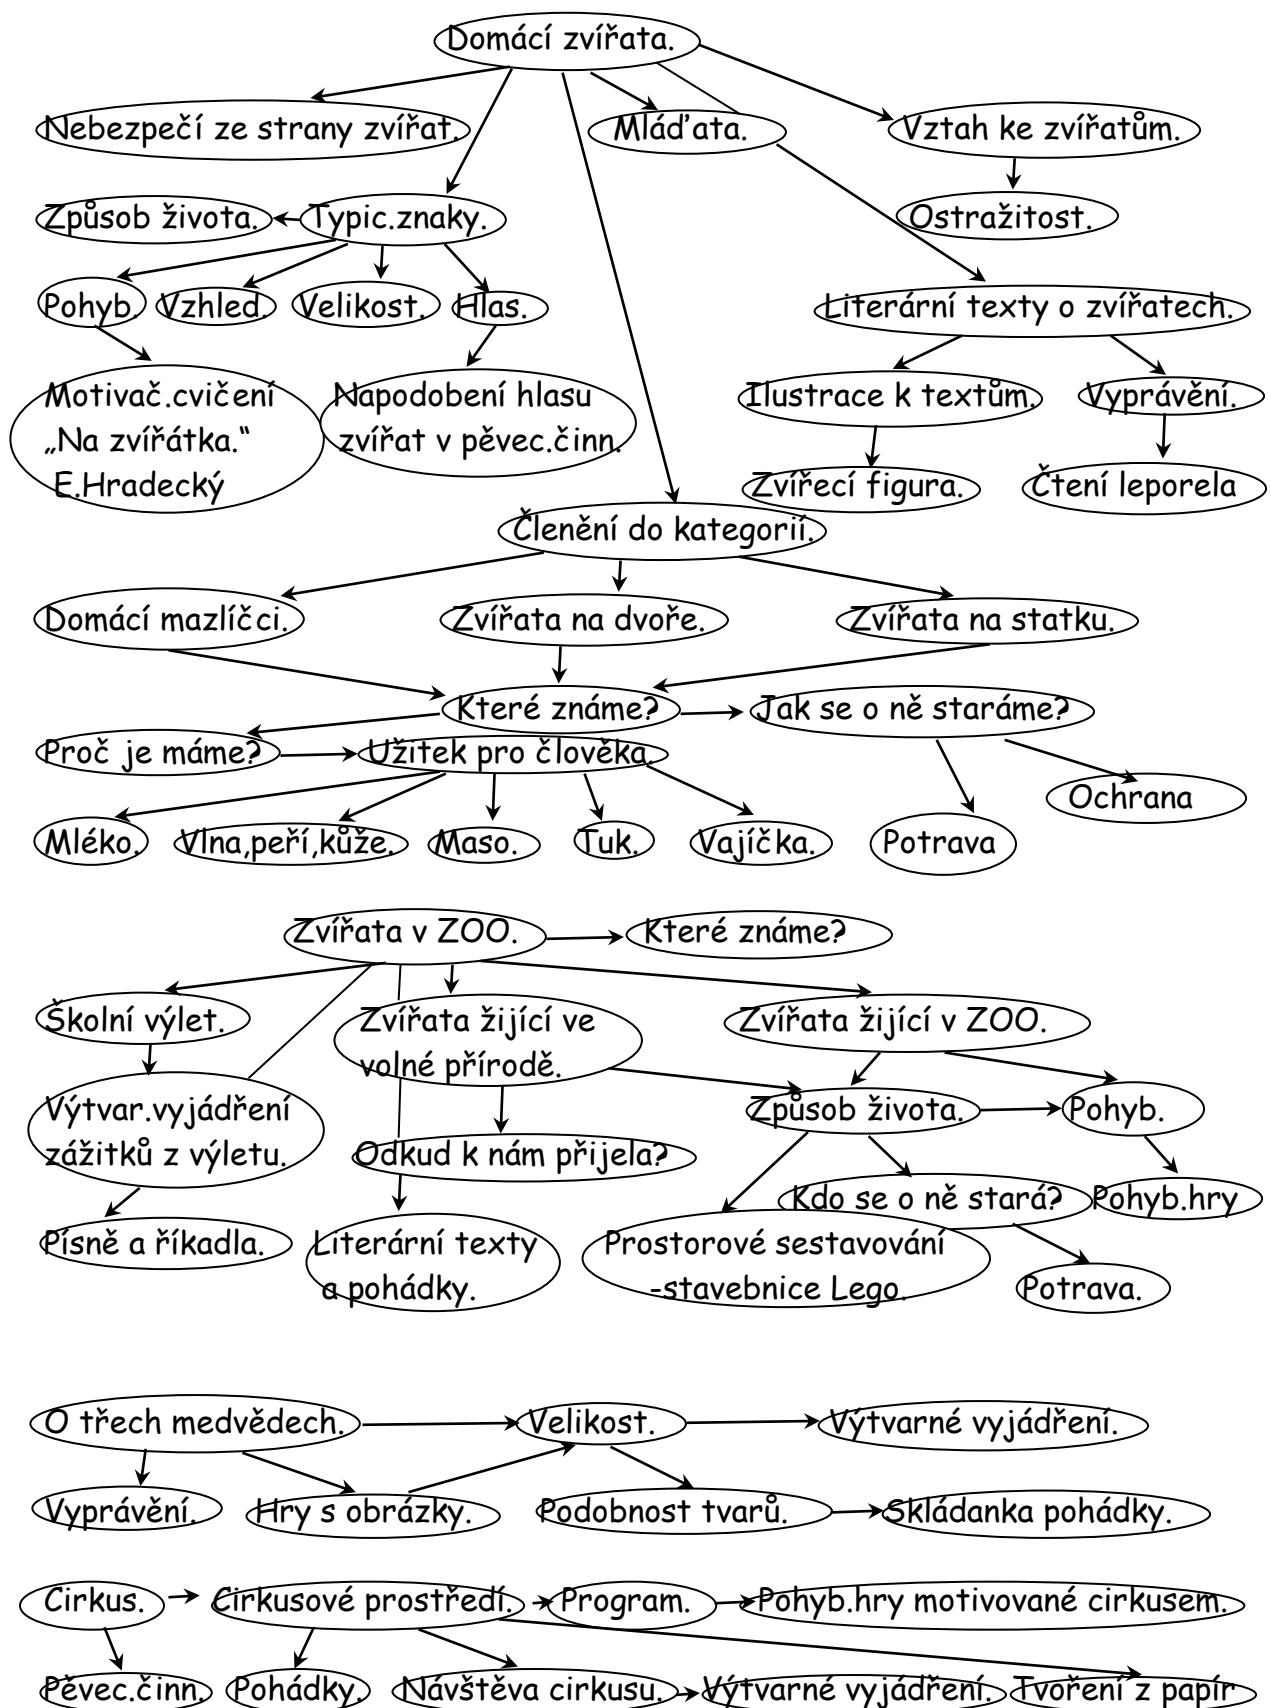 Domácí zvířata.
Nebezpečí ze strany zvířat.
Mláďata.
Vztah ke zvířatům.
Způsob života.
Typic.znaky.
Ostražitost.
Pohyb.
Vzhled.
Velikost.
Hlas.
Literární texty o zvířatech.
Motivač.cvičení
„Na zvířátka."
E.Hradecký
Napodobení hlasu
zvířat v pěvec.činn.
Ilustrace k textům.
Vyprávění.
Zvířecí figura.
Čtení leporela
Členění do kategorií.
Domácí mazlíčci.
Zvířata na dvoře.
Zvířata na statku.
Které známe?
Jak se o ně staráme?
Proč je máme?
Užitek pro člověka.
Ochrana
Mléko.
Vlna,peří,kůže.
Maso.
Tuk.
Vajíčka.
Potrava
Zvířata v ZOO.
Které známe?
Školní výlet.
Zvířata žijící ve
volné přírodě.
Zvířata žijící v ZOO.
Výtvar.vyjádření
zážitků z výletu.
Způsob života.
Pohyb.
Odkud k nám přijela?
Kdo se o ně stará?
Pohyb.hry
Písně a říkadla.
Literární texty
a pohádky.
Prostorové sestavování
-stavebnice Lego.
Potrava.
O třech medvědech.
Velikost.
Výtvarné vyjádření.
Vyprávění.
Hry s obrázky.
Podobnost tvarů.
Skládanka pohádky.
Cirkus.
Cirkusové prostředí.
Program.
Pohyb.hry motivované cirkusem.
Pěvec.činn.
Pohádky.
Návštěva cirkusu.
Výtvarné vyjádření.
Tvoření z papír